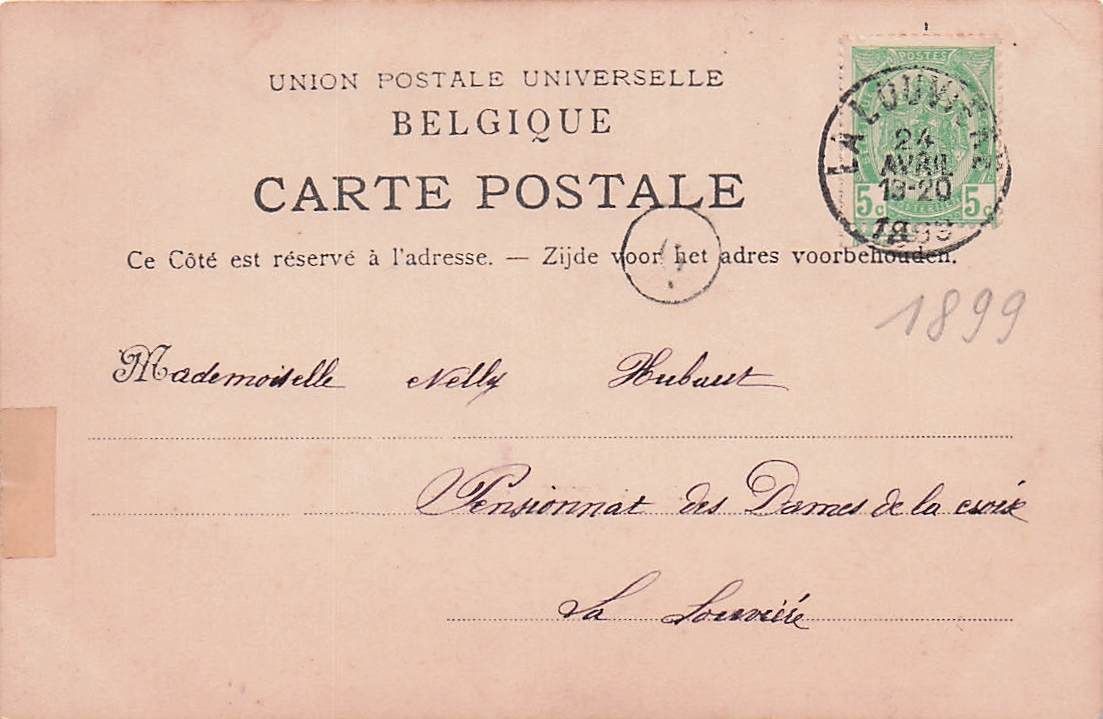 UNION POSTALE UNIVERSELLE
BELGIQUE
CARTE POSTALE
Ce Côté est réservé à l'adresse. — Zijde voor het adres voorbehouden.
POSTES
5c 5c
LA LOUVIÈRE
24
AVRIL
1899
1899
Mademoiselle Nelly Hubaut
Pensionnat des Dames de la croix
La Louvière